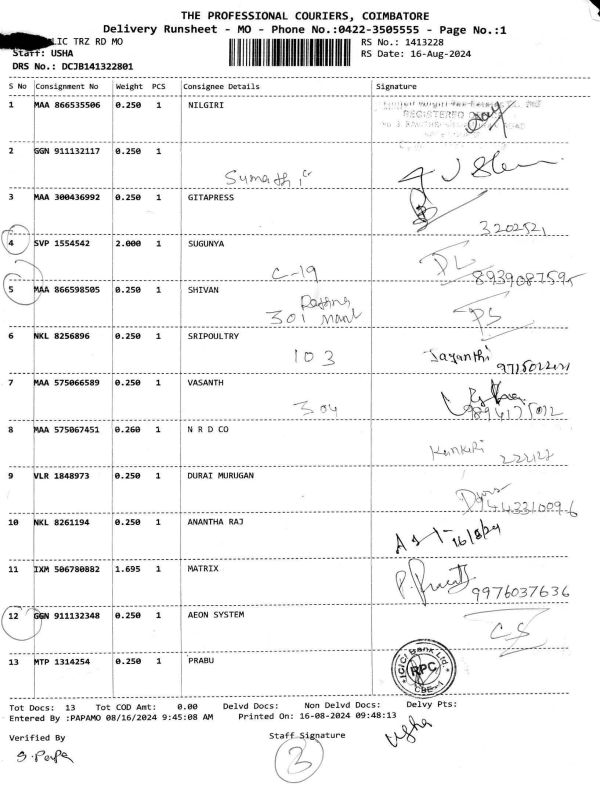 THE PROFESSIONAL COURIERS, COIMBATORE
Delivery Runsheet - MO - Phone No.:0422-3505555 - Page No.:1
LIC TRZ RD MO RS No.: 1413228
Staff: USHA RS Date: 16-Aug-2024
DRS No.: DCJB141322801
S No Consignment No Weight PCS Consignee Details Signature
1 MAA 866535506 0.250 1 NILGIRI
REGISTERED
2 GGN 911132117 0.250 1
Sumathi
3 MAA 300436992 0.250 1 GITAPRESS
3202521
4 SVP 1554542 2.000 1 SUGUNYA
C-19 DL 8939087595
5 MAA 866598505 0.250 1 SHIVAN
301 PS
6 NKL 8256896 0.250 1 SRIPOULTRY
103 Jayanthi
7 MAA 575066589 0.250 1 VASANTH
304
8 MAA 575067451 0.260 1 N R D CO
9 VLR 1848973 0.250 1 DURAI MURUGAN
10 NKL 8261194 0.250 1 ANANTHA RAJ
16/8/24
11 IXM 506780882 1.695 1 MATRIX
9976037636
12 GGN 911132348 0.250 1 AEON SYSTEM
CS
13 MTP 1314254 0.250 1 PRABU
ICICI Bank Ltd.
RPC
CBE-1
Tot Docs: 13 Tot COD Amt: 0.00 Delvd Docs: Non Delvd Docs: Delvy Pts:
Entered By :PAPAMO 08/16/2024 9:45:08 AM Printed On: 16-08-2024 09:48:13
Verified By Staff Signature Usha
S. Papa 3